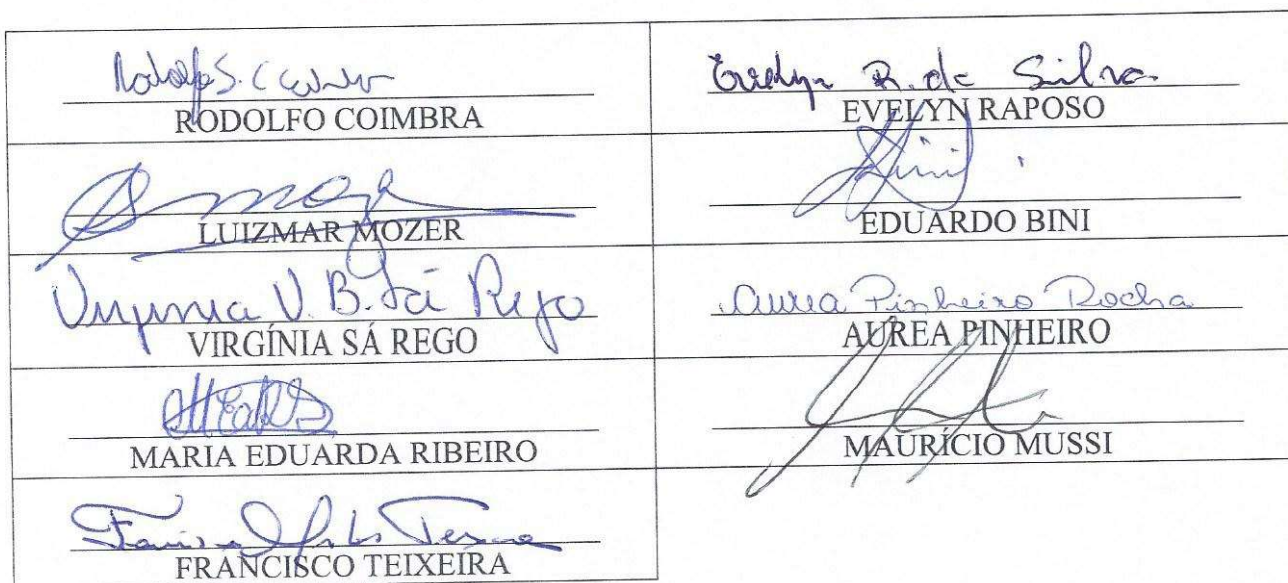 Rodolfo S. Coimbra
RODOLFO COIMBRA
Evelyn R. da Silva
EVELYN RAPOSO
LUIZMAR MOZER
Bini
EDUARDO BINI
Virginia V. B. Sá Rego
VIRGÍNIA SÁ REGO
Aurea Pinheiro Rocha
AUREA PINHEIRO
MARIA EDUARDA RIBEIRO
MAURÍCIO MUSSI
FRANCISCO TEIXEIRA